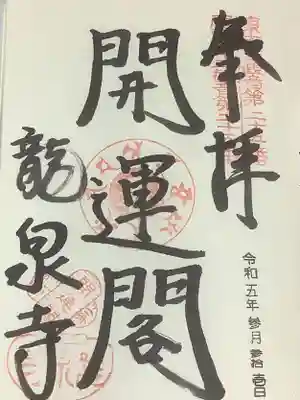 奉拝
開運閣
龍泉寺
令和五年参月参拾壱日